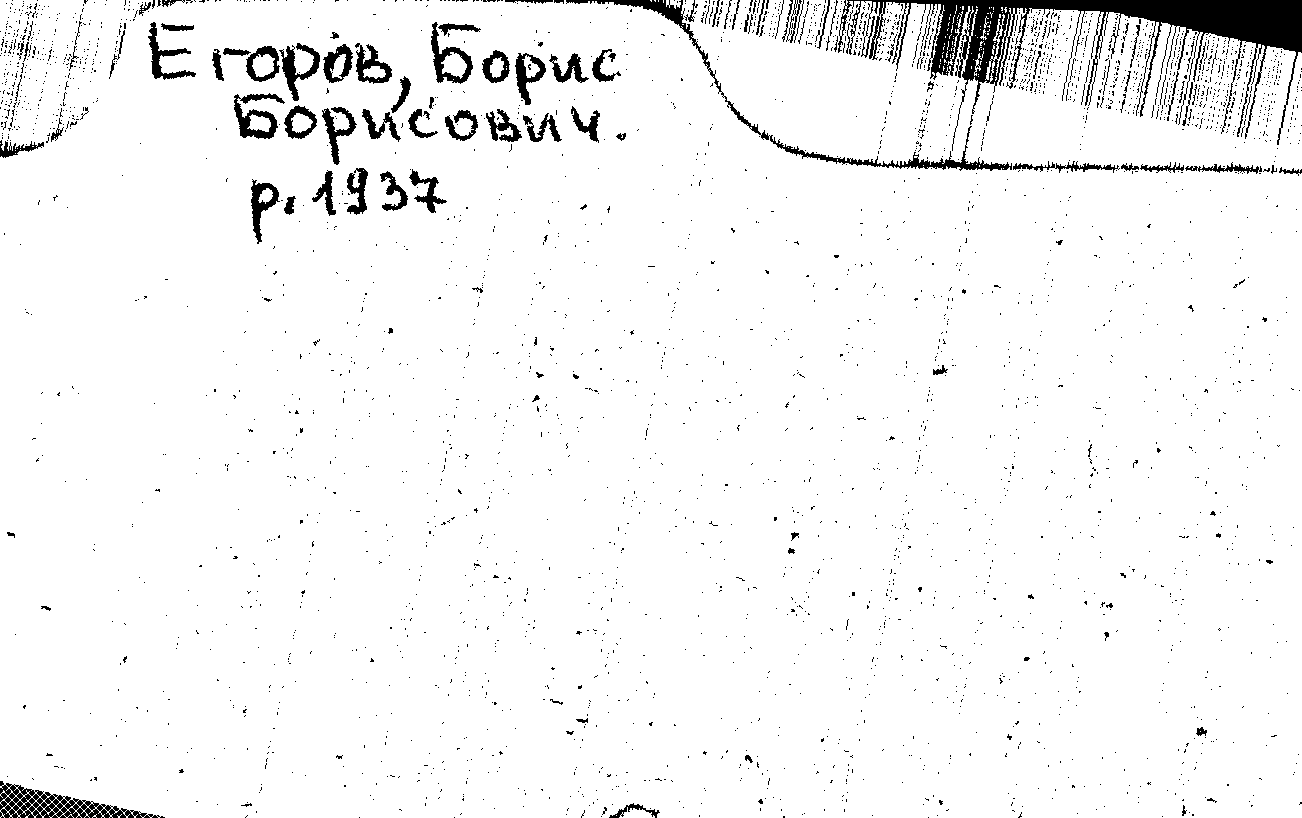 Егоров, Борис
Борисович.
р. 1937